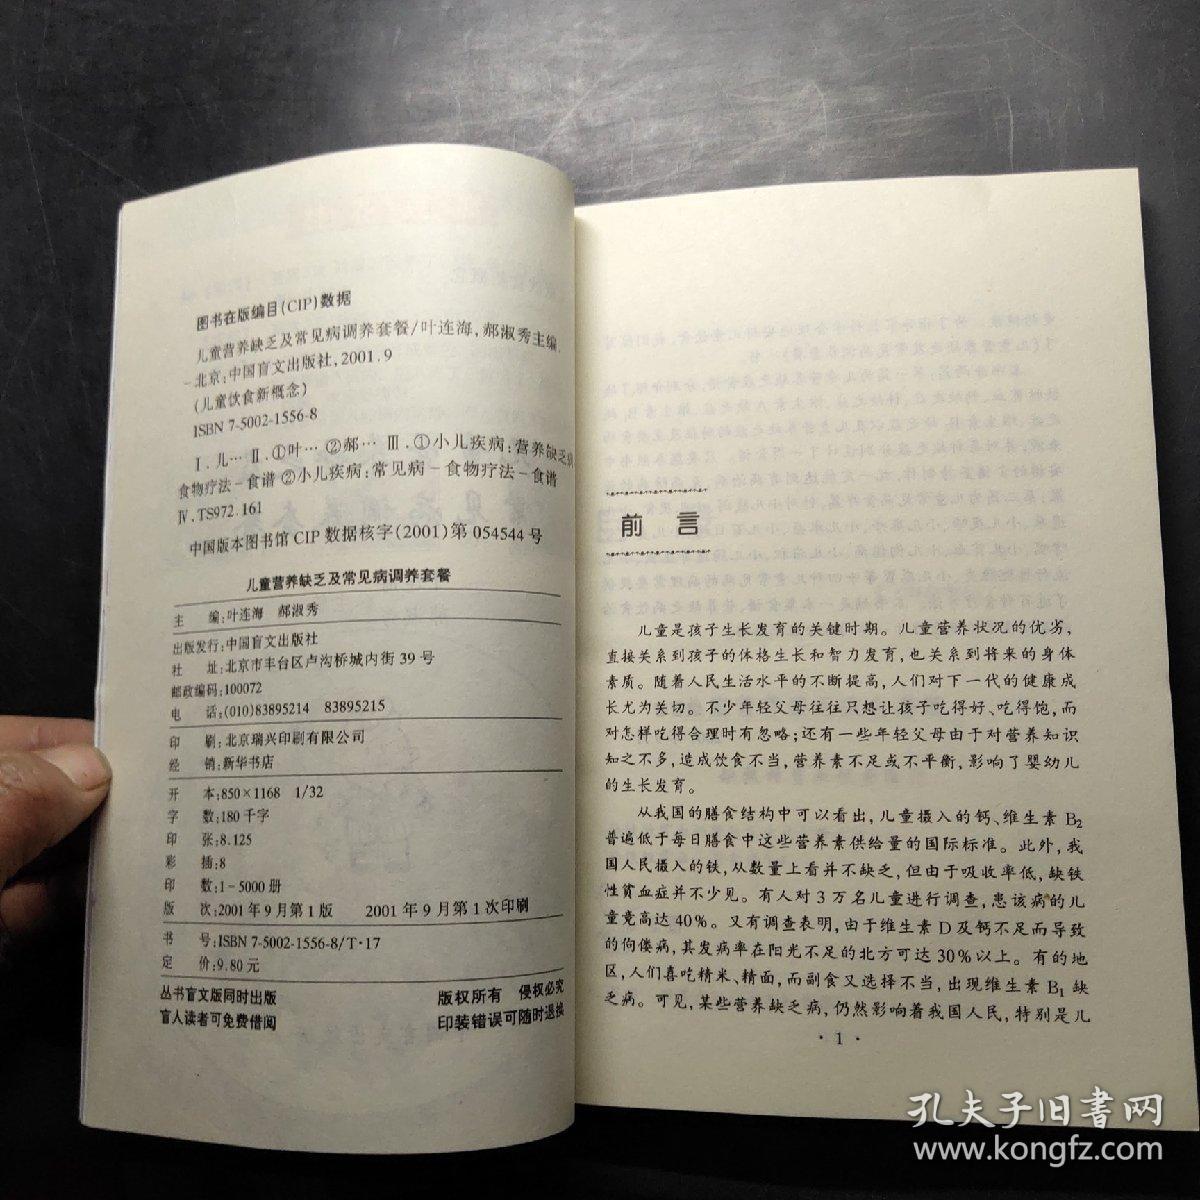 图书在版编目(CIP)数据
儿童营养缺乏及常见病调养套餐/叶连海,郝淑秀主编.
-北京:中国盲文出版社,2001.9
(儿童饮食新概念)
ISBN 7-5002-1556-8
Ⅰ.儿… Ⅱ.①叶… ②郝… Ⅲ.①小儿疾病:营养缺乏病
食物疗法-食谱 ②小儿疾病:常见病-食物疗法-食谱
Ⅳ.TS972.161
中国版本图书馆 CIP 数据核字(2001)第 054544 号
儿童营养缺乏及常见病调养套餐
主 编:叶连海 郝淑秀
出版发行:中国盲文出版社
社 址:北京市丰台区卢沟桥城内街 39 号
邮政编码:100072
电 话:(010)83895214 83895215
印 刷:北京瑞兴印刷有限公司
经 销:新华书店
开 本:850×1168 1/32
字 数:180 千字
印 张:8.125
彩 插:8
印 数:1-5000 册
版 次:2001 年 9 月第 1 版 2001 年 9 月第 1 次印刷
书 号:ISBN 7-5002-1556-8/T·17
定 价:9.80 元
丛书盲文版同时出版 版权所有 侵权必究
盲人读者可免费借阅 印装错误可随时退换
前 言
儿童是孩子生长发育的关键时期。儿童营养状况的优劣,
直接关系到孩子的体格生长和智力发育,也关系到将来的身体
素质。随着人民生活水平的不断提高,人们对下一代的健康成
长尤为关切。不少年轻父母往往只想让孩子吃得好、吃得饱,而
对怎样吃得合理时有忽略;还有一些年轻父母由于对营养知识
知之不多,造成饮食不当,营养素不足或不平衡,影响了婴幼儿
的生长发育。
从我国的膳食结构中可以看出,儿童摄入的钙、维生素 B₂
普遍低于每日膳食中这些营养素供给量的国际标准。此外,我
国人民摄入的铁,从数量上看并不缺乏,但由于吸收率低,缺铁
性贫血症并不少见。有人对 3 万名儿童进行调查,患该病的儿
童竟高达 40%。又有调查表明,由于维生素 D 及钙不足而导致
的佝偻病,其发病率在阳光不足的北方可达 30% 以上。有的地
区,人们喜吃精米、精面,而副食又选择不当,出现维生素 B₁ 缺
乏病。可见,某些营养缺乏病,仍然影响着我国人民,特别是儿
· 1 ·
孔夫子旧书网
www.kongfz.com